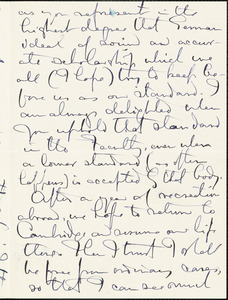 as you represent in the
highest degree that German
ideal of sound and accur-
ate scholarship which we
all (I hope) try to keep be-
fore us as our standard. I
am always delighted when
you uphold that standard
in the Faculty, even when
a lower standard (as often
happens) is accepted by that body.
After a year of recreation
abroad, we hope to return to
Cambridge and resume our life
there. Then I trust I shall
be free from ordinary cares,
so that I can see much